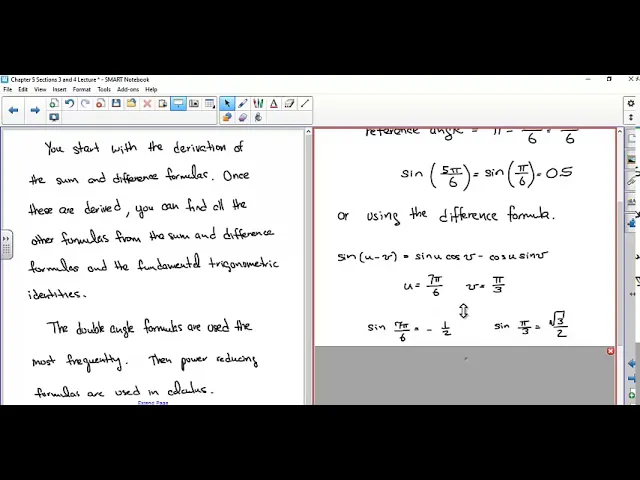 Chapter 5 Sections 3 and 4 Lecture * - SMART Notebook
File Edit View Insert Format Tools Add-ons Help
You start with the derivation of
the sum and difference formulas. Once
these are derived, you can find all the
other formulas from the sum and difference
formulas and the fundamental trigonometric
identities.
The double angle formulas are used the
most frequently. Then power reducing
formulas are used in calculus.
Extend Page
reference angle = π - π/6 = π/6
sin (5π/6) = sin (π/6) = 0.5
or using the difference formula.
sin(u-v) = sinu cosv - cosu sinv
u = 7π/6 v = π/3
sin 7π/6 = - 1/2 sin π/3 = √3/2